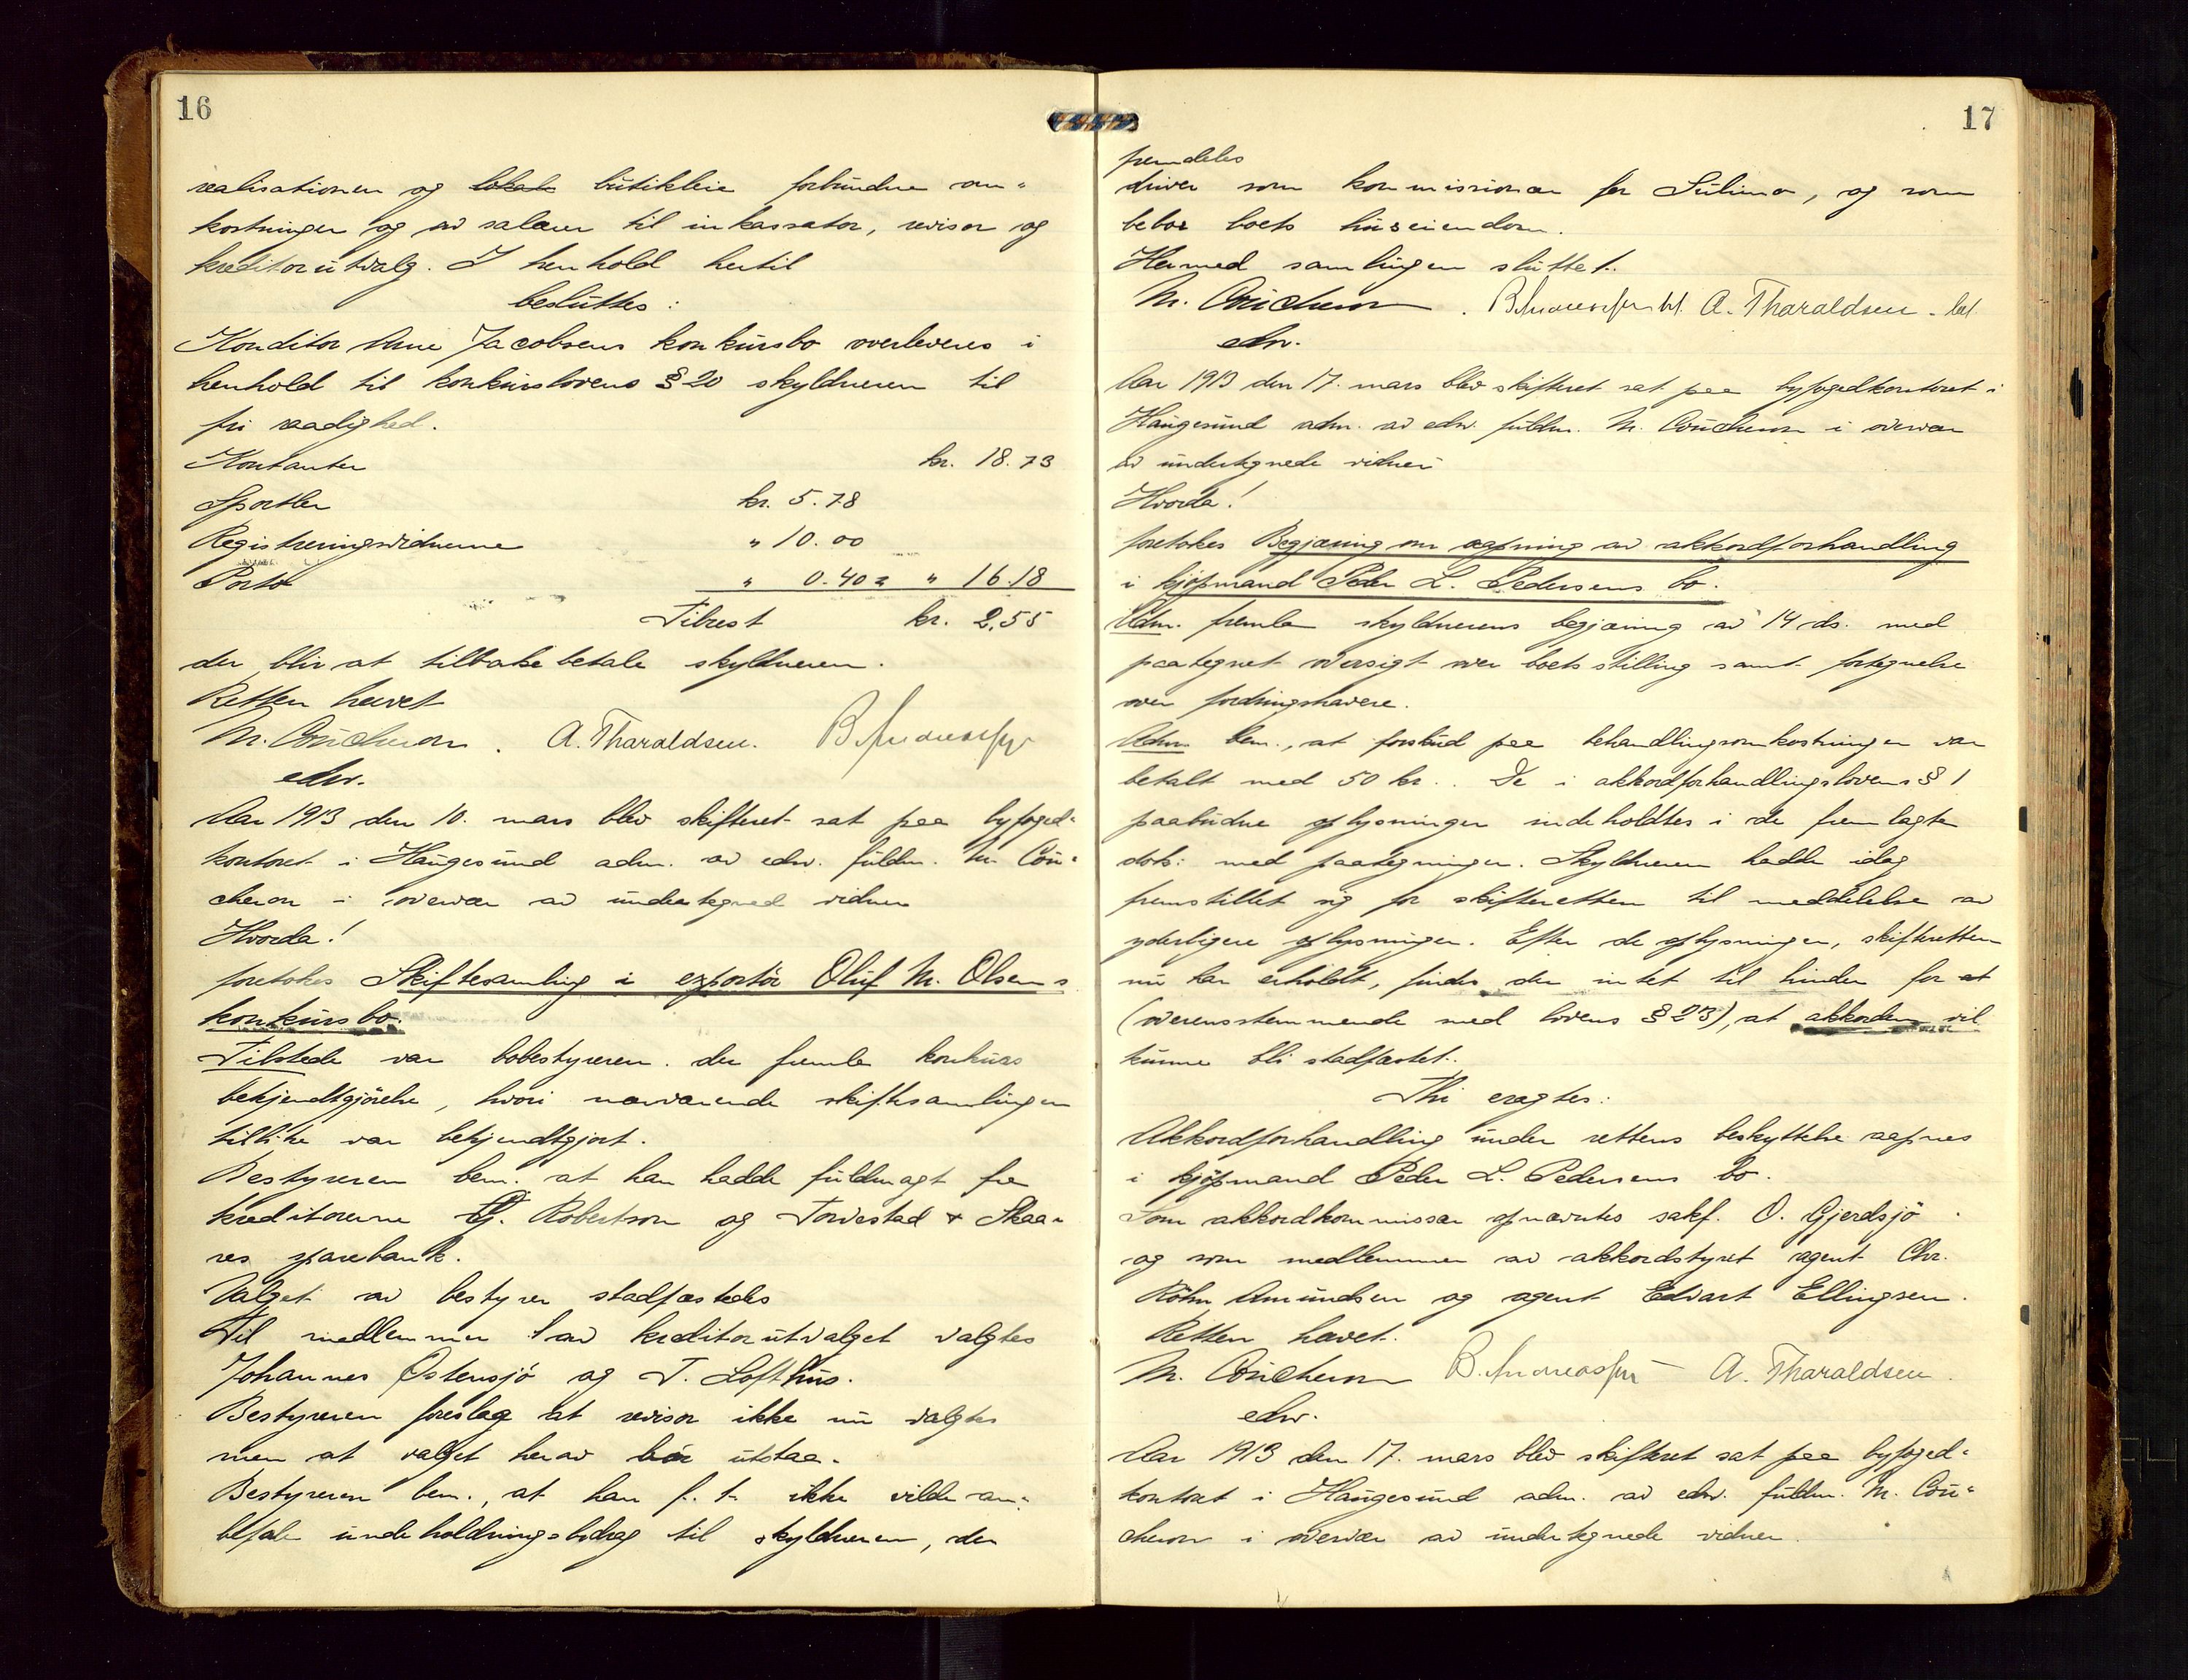 16
realisationen og lokale butikleie forbundne om-
kostninger og av salærer til inkassator, revisor og
kreditorutvalg. I henhold hertil
besluttes:
Konditor Arne Jacobsens konkursbo overleveres i
henhold til konkurslovens § 20 skyldneren til
fri raadighed.
Kontanter kr. 18.73
Sportler kr. 5.78
Registreringsvidnerne " 10.00
Porto " 0.40 = " 16.18
Tilrest kr. 2.55
der blir at tilbakebetale skyldneren.
Retten hævet
M. Coucheron. A. Tharaldsen. B. Andreassen
edsv.
Aar 1913 den 10. mars blev skifteret sat paa byfoged-
kontoret i Haugesund adm. av edsv. fuldm. M. Cou-
cheron i overvær av undertegnede vidner
Hvorda!
foretokes Skiftesamling i exportør Oluf M. Olsens
konkursbo.
Tilstede var bobestyreren. der fremla konkurs
bekjendtgjörelse, hvori nærværende skiftesamlingen
tillike var bekjendtgjort.
Bestyreren bem. at han hadde fuldmagt fra
kreditorerne Robertson og Torvestad & Skaa-
res sparebank.
Valget av bestyrer stadfæstedes
Til medlemmer av kreditorutvalget valgtes
Johannes Østensjö og T. Lofthus.
Bestyreren foreslog at revisor ikke nu valgtes
men at valget herav bør utstaa.
Bestyreren bem., at han f. t. ikke vilde an-
befale underholdningsbidrag til skyldneren, der
17
fremdeles
driver som kommissionær for Sulima, og som
bebor boets huseiendom.
Hermed samlingen sluttet.
M. Coucheron. B. Andreassen bl. A. Tharaldsen. bl.
edsv.
Aar 1913 den 17. mars blev skifteret sat paa byfogedkontoret i
Haugesund adm. av edsv. fuldm. M. Coucheron i overvær
av undertegnede vidner
Hvorda!
foretokes Begjæring om aapning av akkordforhandling
i kjöpmand Peder L. Pedersens bo.
Adm. fremla skyldnerens begjæring av 14 ds. med
paategnet oversigt over boets stilling samt fortegnelse
over fordringshavere.
Adm. bem., at forskud paa behandlingsomkostninger var
betalt med 50 kr. De i akkordforhandlingslovens § 1
paabudne oplysninger indeholdtes i de fremlagte
dok: med paategninger. Skyldneren hadde idag
fremstillet sig for skifteretten til meddelelse av
yderligere oplysninger. Efter de oplysninger, skifteretten
nu har erholdt, findes der intet til hinder for at
(overensstemmende med lovens § 23), at akkorden vil
kunne bli stadfæstet.
Thi eragtes:
Akkordforhandling under rettens beskyttelse aapnes
i kjöpmand Peder L. Pedersens bo.
Som akkordkommissær opnævntes sakf. O. Gjerdsjö
og som medlemmer av akkordstyret agent Chr.
Röhn Amundsen og agent Edvart Ellingsen.
Retten hævet.
M. Coucheron B. Andreassen A. Tharaldsen.
edsv.
Aar 1913 den 17. mars blev skifteret sat paa byfoged-
kontoret i Haugesund adm. av edsv. fuldm. M. Cou-
cheron i overvær av undertegnede vidner.